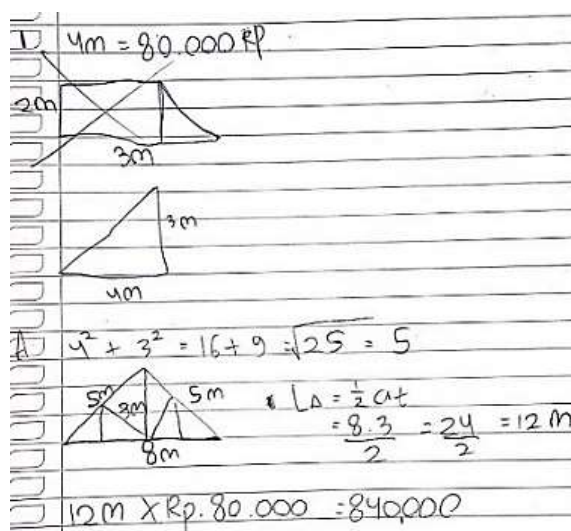 1 4m = 80.000 RP
2m
3m
3m
4m
A 4² + 3² = 16 + 9 = √25 = 5
5m 3m 5m
8m
L△ = ½ at
= 8.3/2 = 24/2 = 12 m
12m X Rp. 80.000 = 840,000